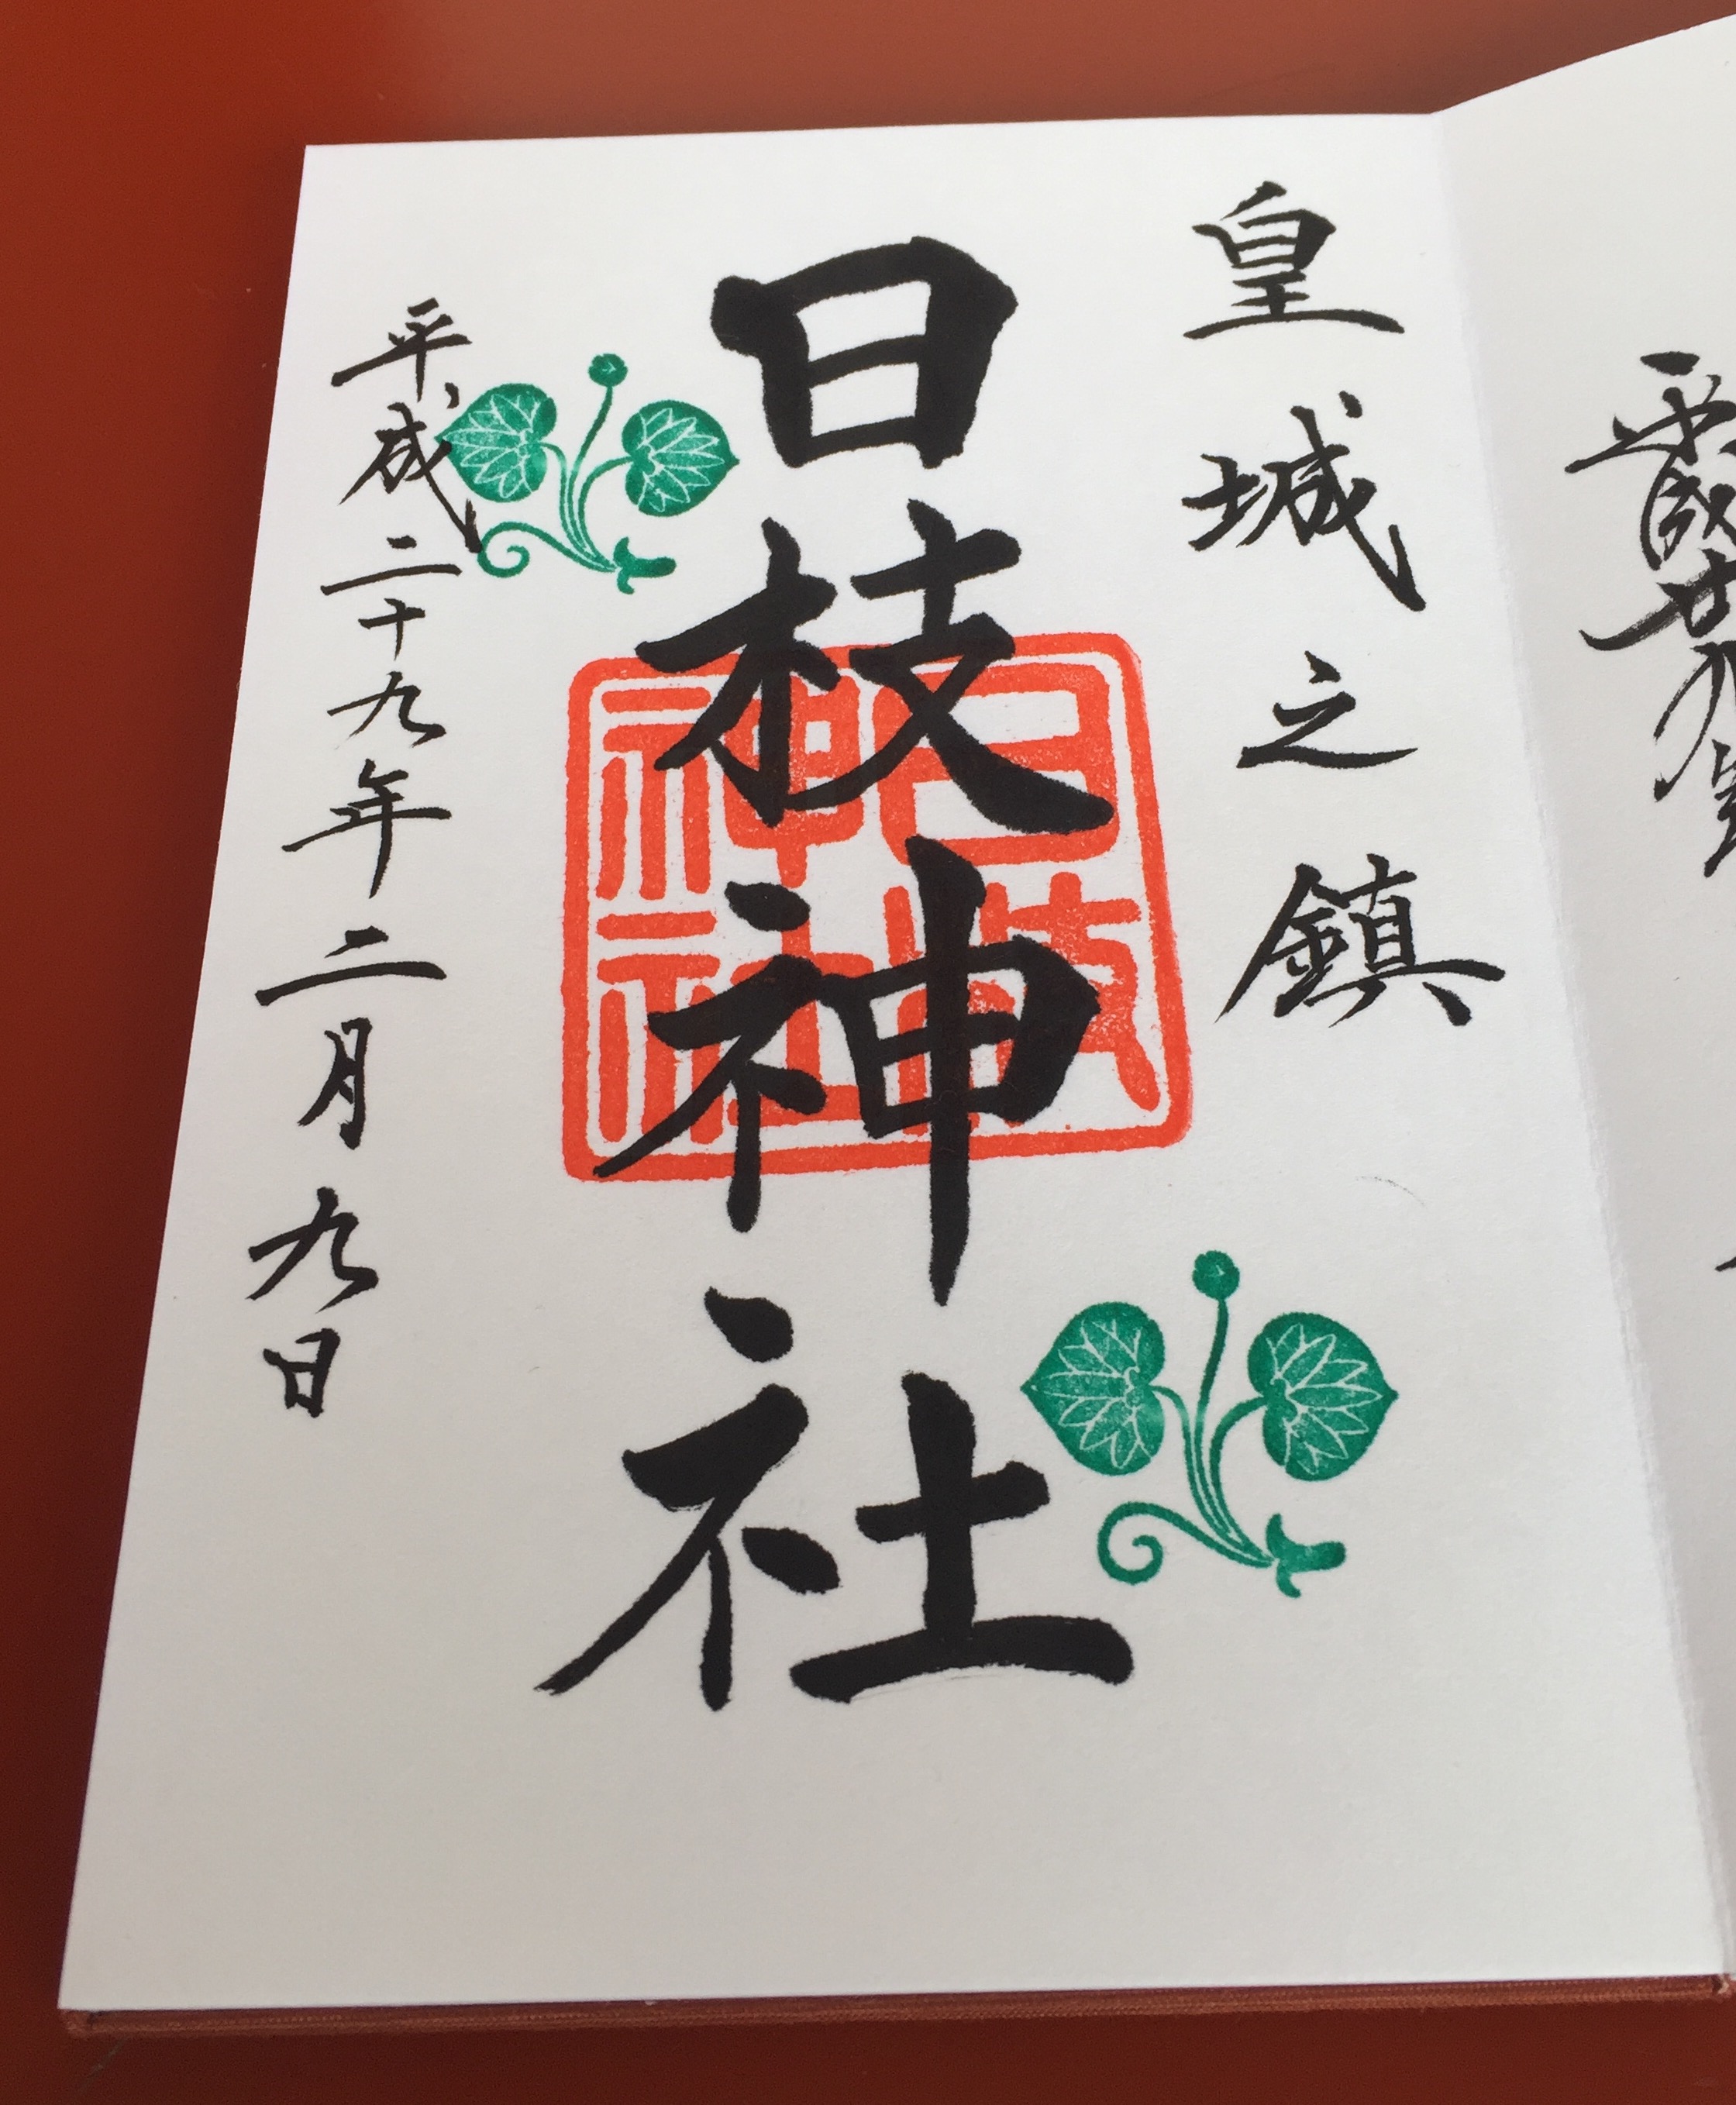 皇城之鎮
日枝神社
日枝神社
平成二十九年二月九日